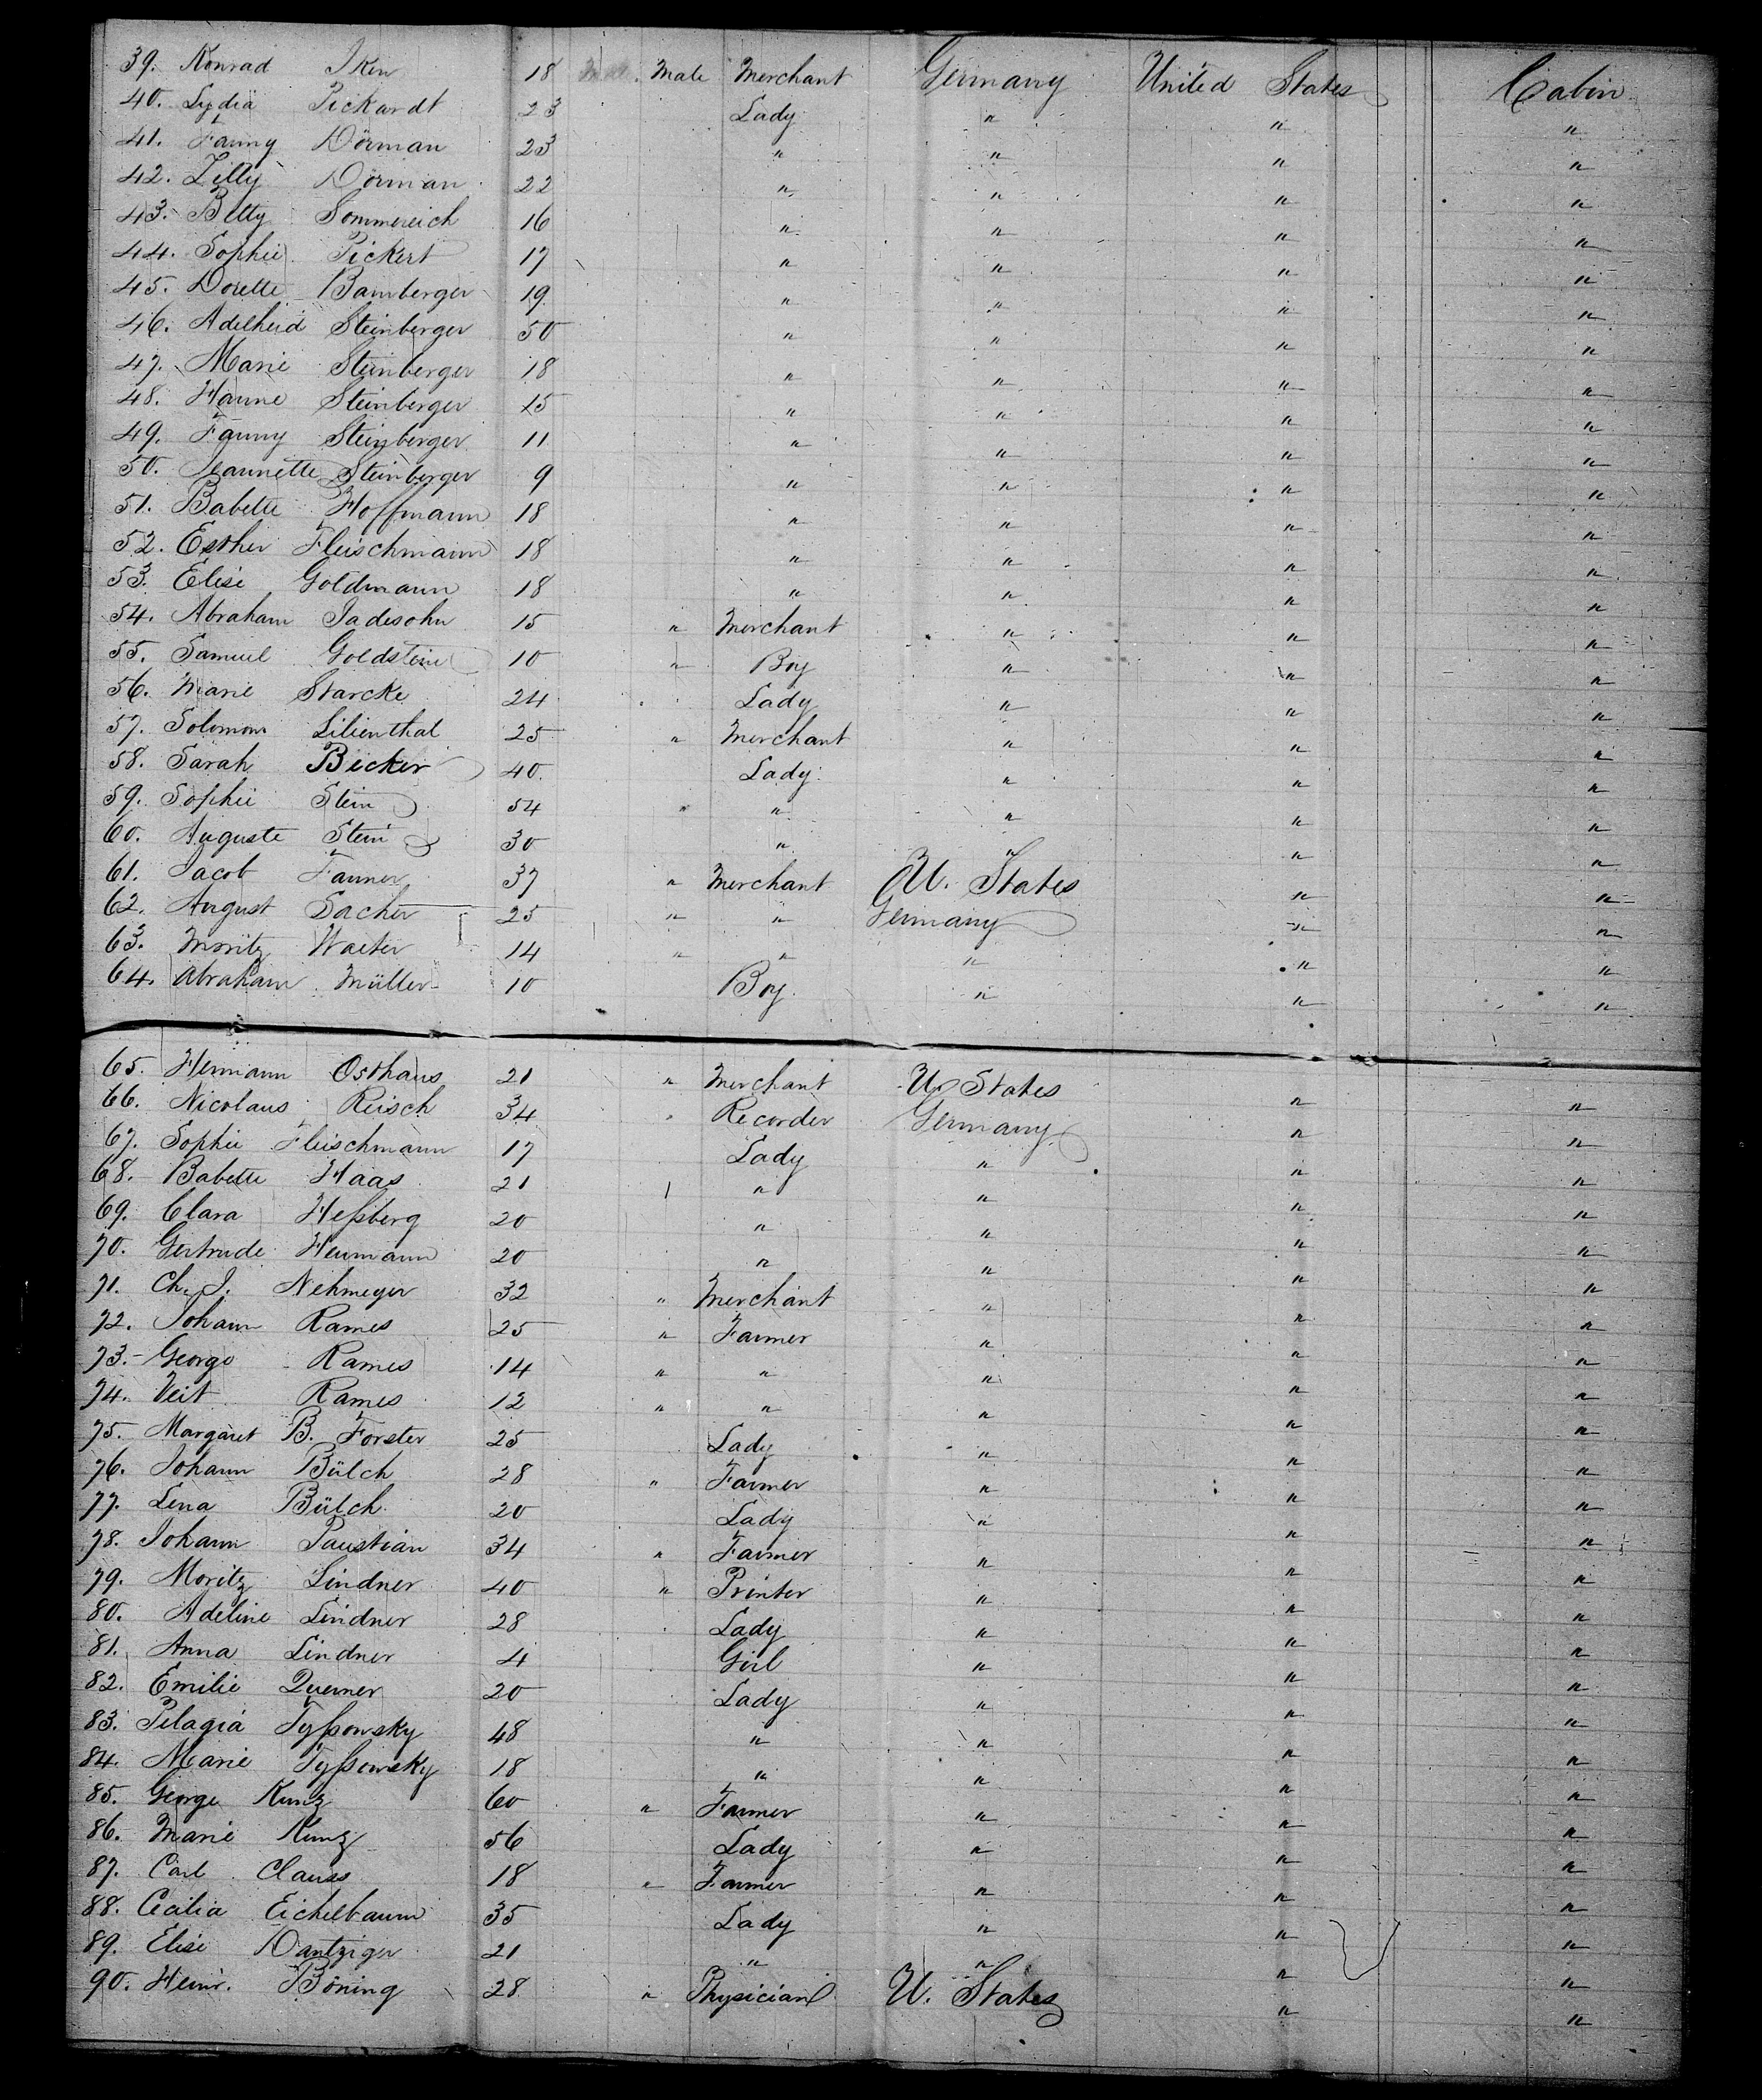 39. Konrad Iken 18 Male Merchant Germany United States Cabin
40. Lydia Pickardt 23 Lady " " "
41. Fanny Dörman 23 " " " "
42. Lilly Dörman 22 " " " "
43. Betty Sommereich 16 " " " "
44. Sophie Pickert 17 " " " "
45. Dorette Bamberger 19 " " " "
46. Adelheid Steinberger 50 " " " "
47. Marie Steinberger 18 " " " "
48. Hanne Steinberger 15 " " " "
49. Fanny Steinberger 11 " " " "
50. Jeannette Steinberger 9 " " " "
51. Babette Hoffmann 18 " " " "
52. Esther Fleischmann 18 " " " "
53. Elise Goldmann 18 " " " "
54. Abraham Jadesohn 15 " Merchant " " "
55. Samuel Goldstein 10 " Boy " " "
56. Marie Starcke 24 Lady " " "
57. Solomon Lilienthal 25 " Merchant " " "
58. Sarah Becker 40 Lady " " "
59. Sophie Stein 54 " " " " "
60. Auguste Stein 30 " " " "
61. Jacob Fanner 37 " Merchant U. States " "
62. August Sacher 25 " " Germany " "
63. Moritz Walter 14 " " " " "
64. Abraham Müller 10 Boy " " "
65. Hermann Osthaus 21 " Merchant U. States " "
66. Nicolaus Reisch 34 " Recorder Germany " "
67. Sophie Fleischmann 17 Lady " " "
68. Babette Haas 21 " " " "
69. Clara Heßberg 20 " " " "
70. Gertrude Heumann 20 " " " "
71. Ch. J. Nehmeyer 32 " Merchant " " "
72. Johann Rames 25 " Farmer " " "
73. George Rames 14 " " " " "
74. Veit Rames 12 " " " " "
75. Margaret B. Forster 25 Lady " " "
76. Johann Bülch 28 " Farmer " " "
77. Lena Bülch 20 Lady " " "
78. Johann Paustian 34 " Farmer " " "
79. Moritz Lindner 40 " Printer " " "
80. Adeline Lindner 28 Lady " " "
81. Anna Lindner 4 Girl " " "
82. Emilie Querner 20 Lady " " "
83. Pelagia Tyßowsky 48 " " " "
84. Marie Tyßowsky 18 " " " "
85. George Kunz 60 " Farmer " " "
86. Marie Kunz 56 Lady " " "
87. Carl Clauss 18 " Farmer " " "
88. Cecilia Eichelbaum 35 Lady " " "
89. Elise Dantziger 21 " " " "
90. Heinr. Böning 28 " Physician U. States " "